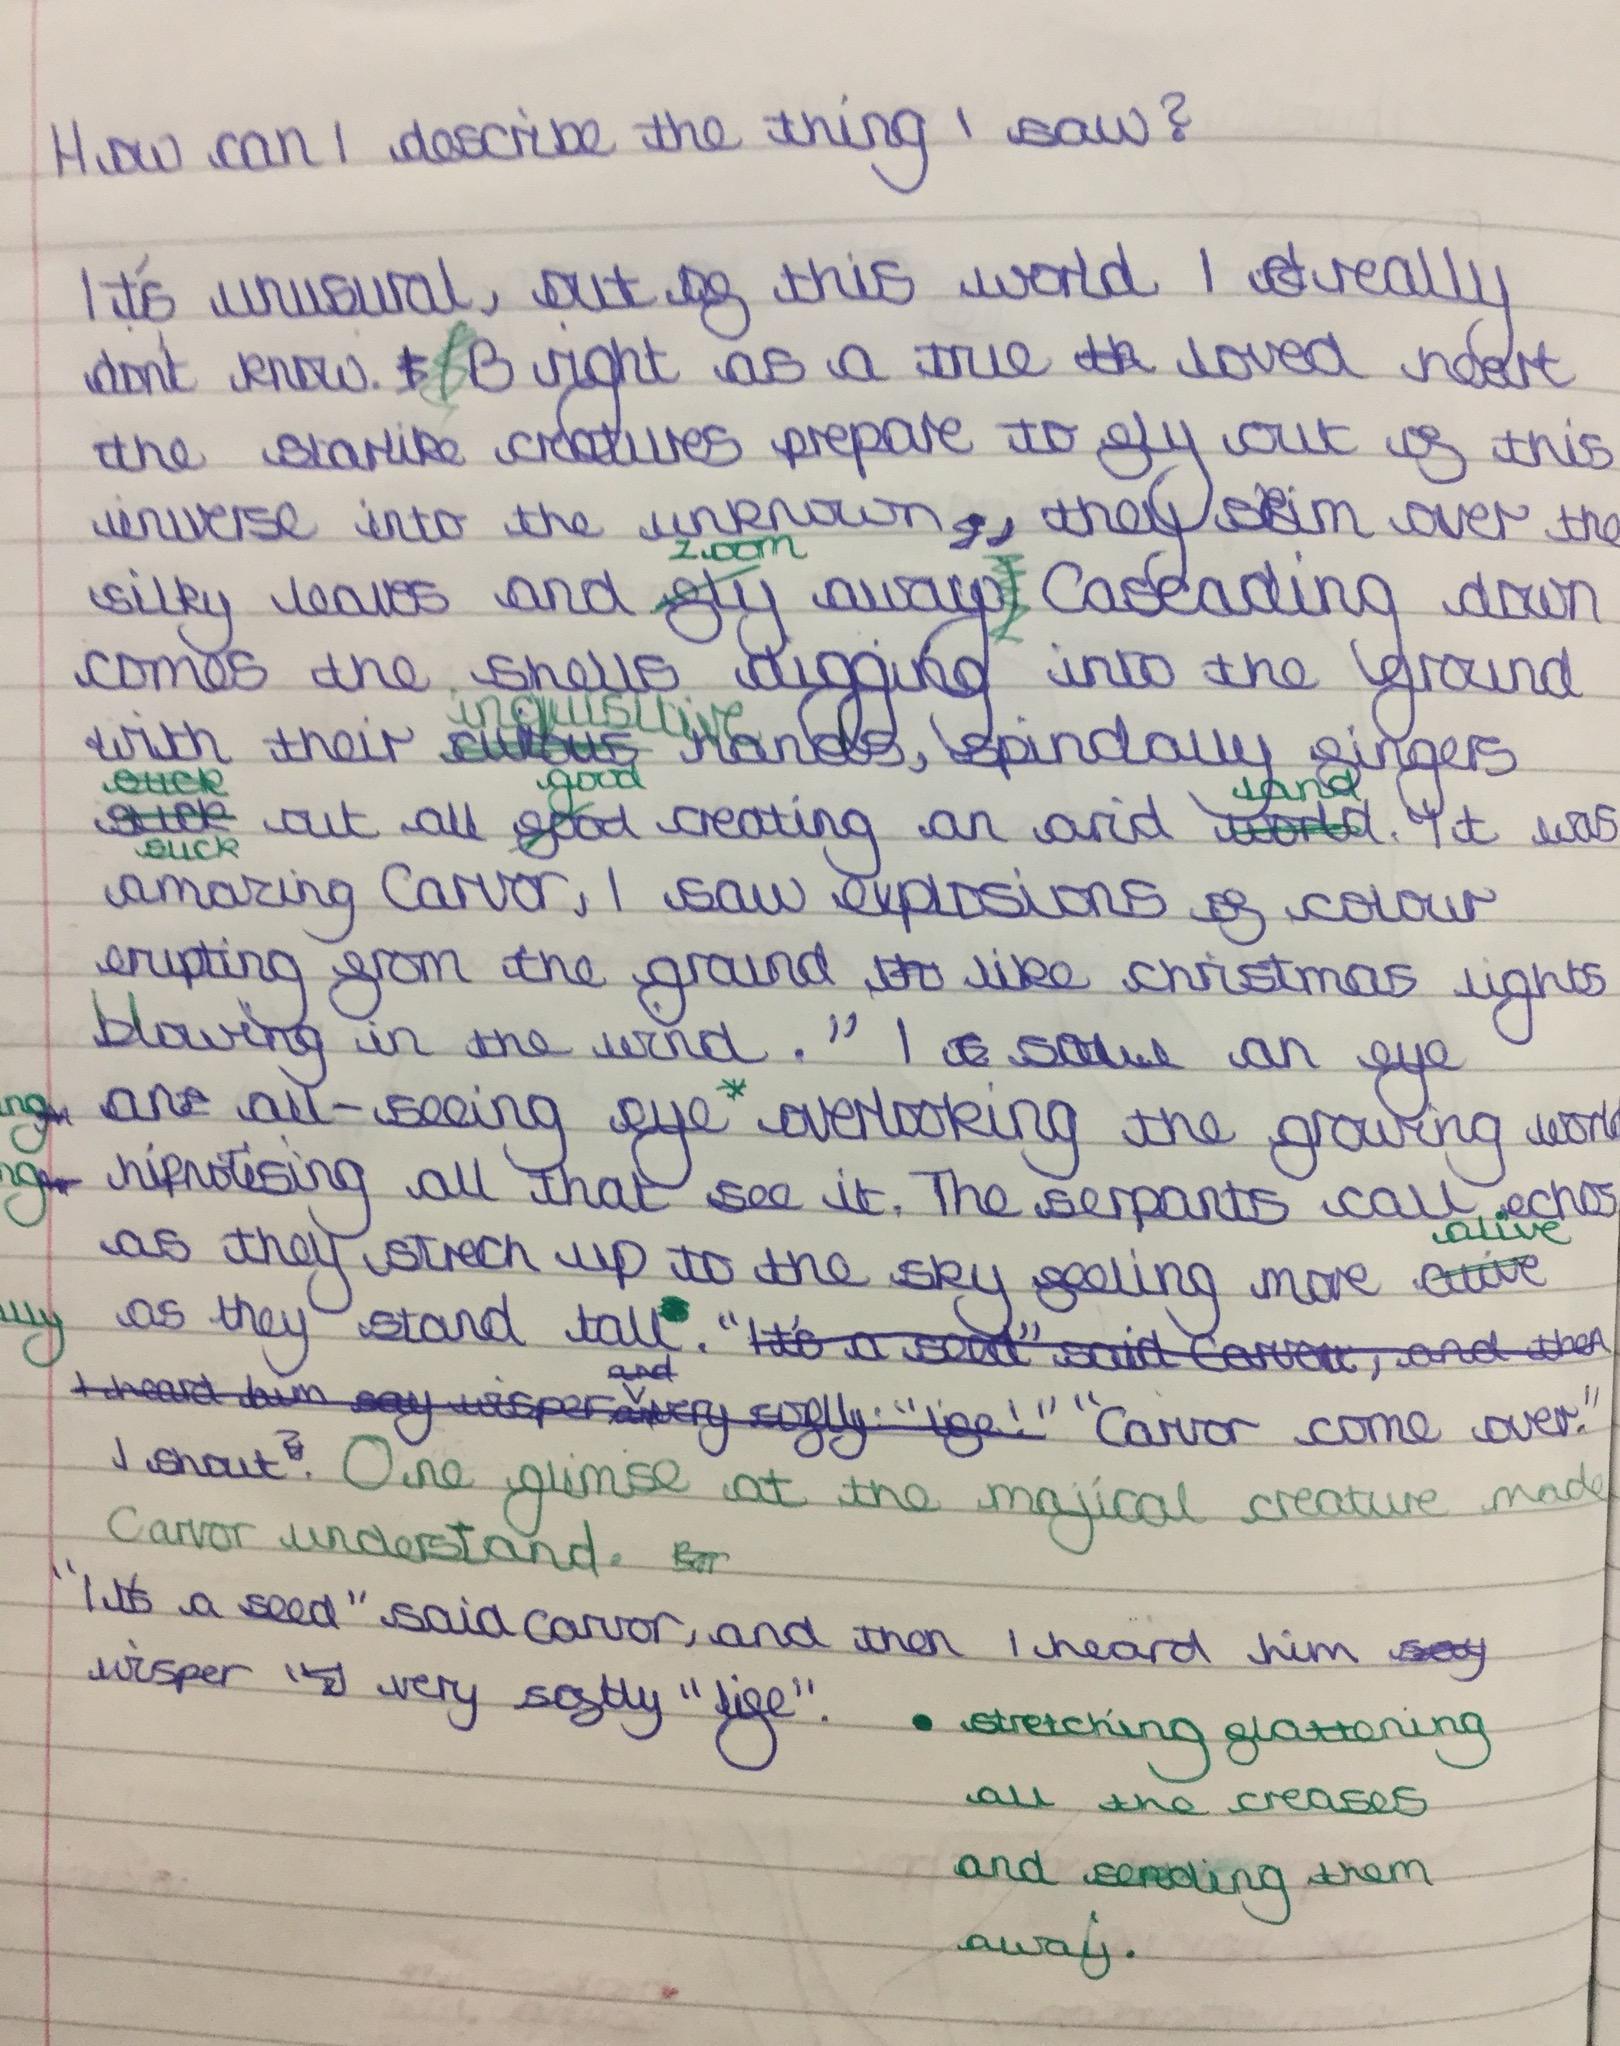 How can I describe the thing I saw?
It's unusual, out of this world I really
dont know. Bright as a true loved heart
the starlike creatures prepare to fly out of this
inverse into the unknown, they skim over the
zoom
silky leaves and fly away. Cascading down
comes the shells digging into the ground
inquisitive
with their curious hands, spindally fingers
suck good land
suck out all good creating an arid world. "It was
suck
amazing Carvor, I saw explosions of colour
erupting from the ground like christmas lights
blowing in the wind." I saw an eye
ng an all-seeing eye* overlooking the growing world
ng hipnotising all that see it. The serpants call echos
alive
as they strech up to the sky feeling more alive
lly as they stand tall. "It's a seed" said Carvor, and then
and
I heard him say wisper very softly: "life!" "Carvor come over."
I shout. One glimse at the majical creature made
Carvor understand.
"It's a seed" said Carvor, and then I heard him say
wisper very softly "life".
• stretching flattening
all the creases
and sending them
away.